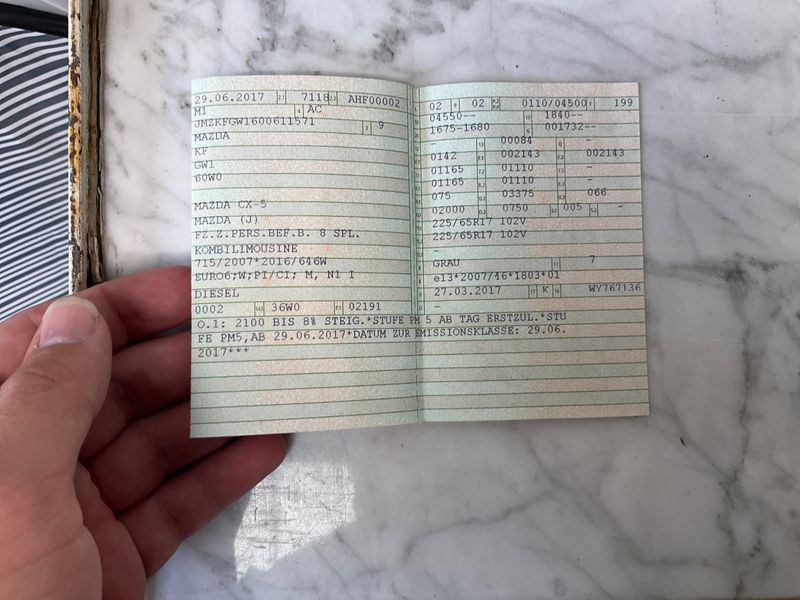 29.06.2017 7118 AHF00002
M1 AC
JMZKFGW1600611571 9
MAZDA
KF
GW1
60W0
MAZDA CX-5
MAZDA (J)
FZ.Z.PERS.BEF.B. 8 SPL.
KOMBILIMOUSINE
715/2007*2016/646W
EURO6;W;PI/CI; M, N1 I
DIESEL
0002 36W0 02191
O.1: 2100 BIS 8% STEIG.*STUFE PM 5 AB TAG ERSTZUL.*STU
FE PM5,AB 29.06.2017*DATUM ZUR EMISSIONSKLASSE: 29.06.
2017***
02 02 0110/04500 199
04550-- 1840--
1675-1680 001732--
- 00084 -
0142 002143 002143
01165 01110 -
01165 01110 -
075 03375 066
02000 0750 005 -
225/65R17 102V
225/65R17 102V
-
GRAU 7
e13*2007/46*1803*01
27.03.2017 K WY767136
-